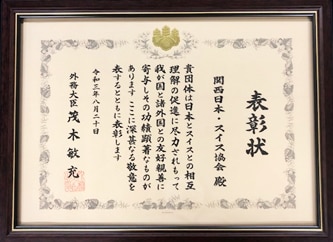 表彰状
関西日本・スイス協会 殿
貴団体は日本とスイスとの相互
理解の促進に尽力されもって
我が国と諸外国との友好親善に
寄与しその功績顕著なものが
あります ここに深甚なる敬意を
表するとともに表彰します
令和三年八月二十日
外務大臣 茂木敏充